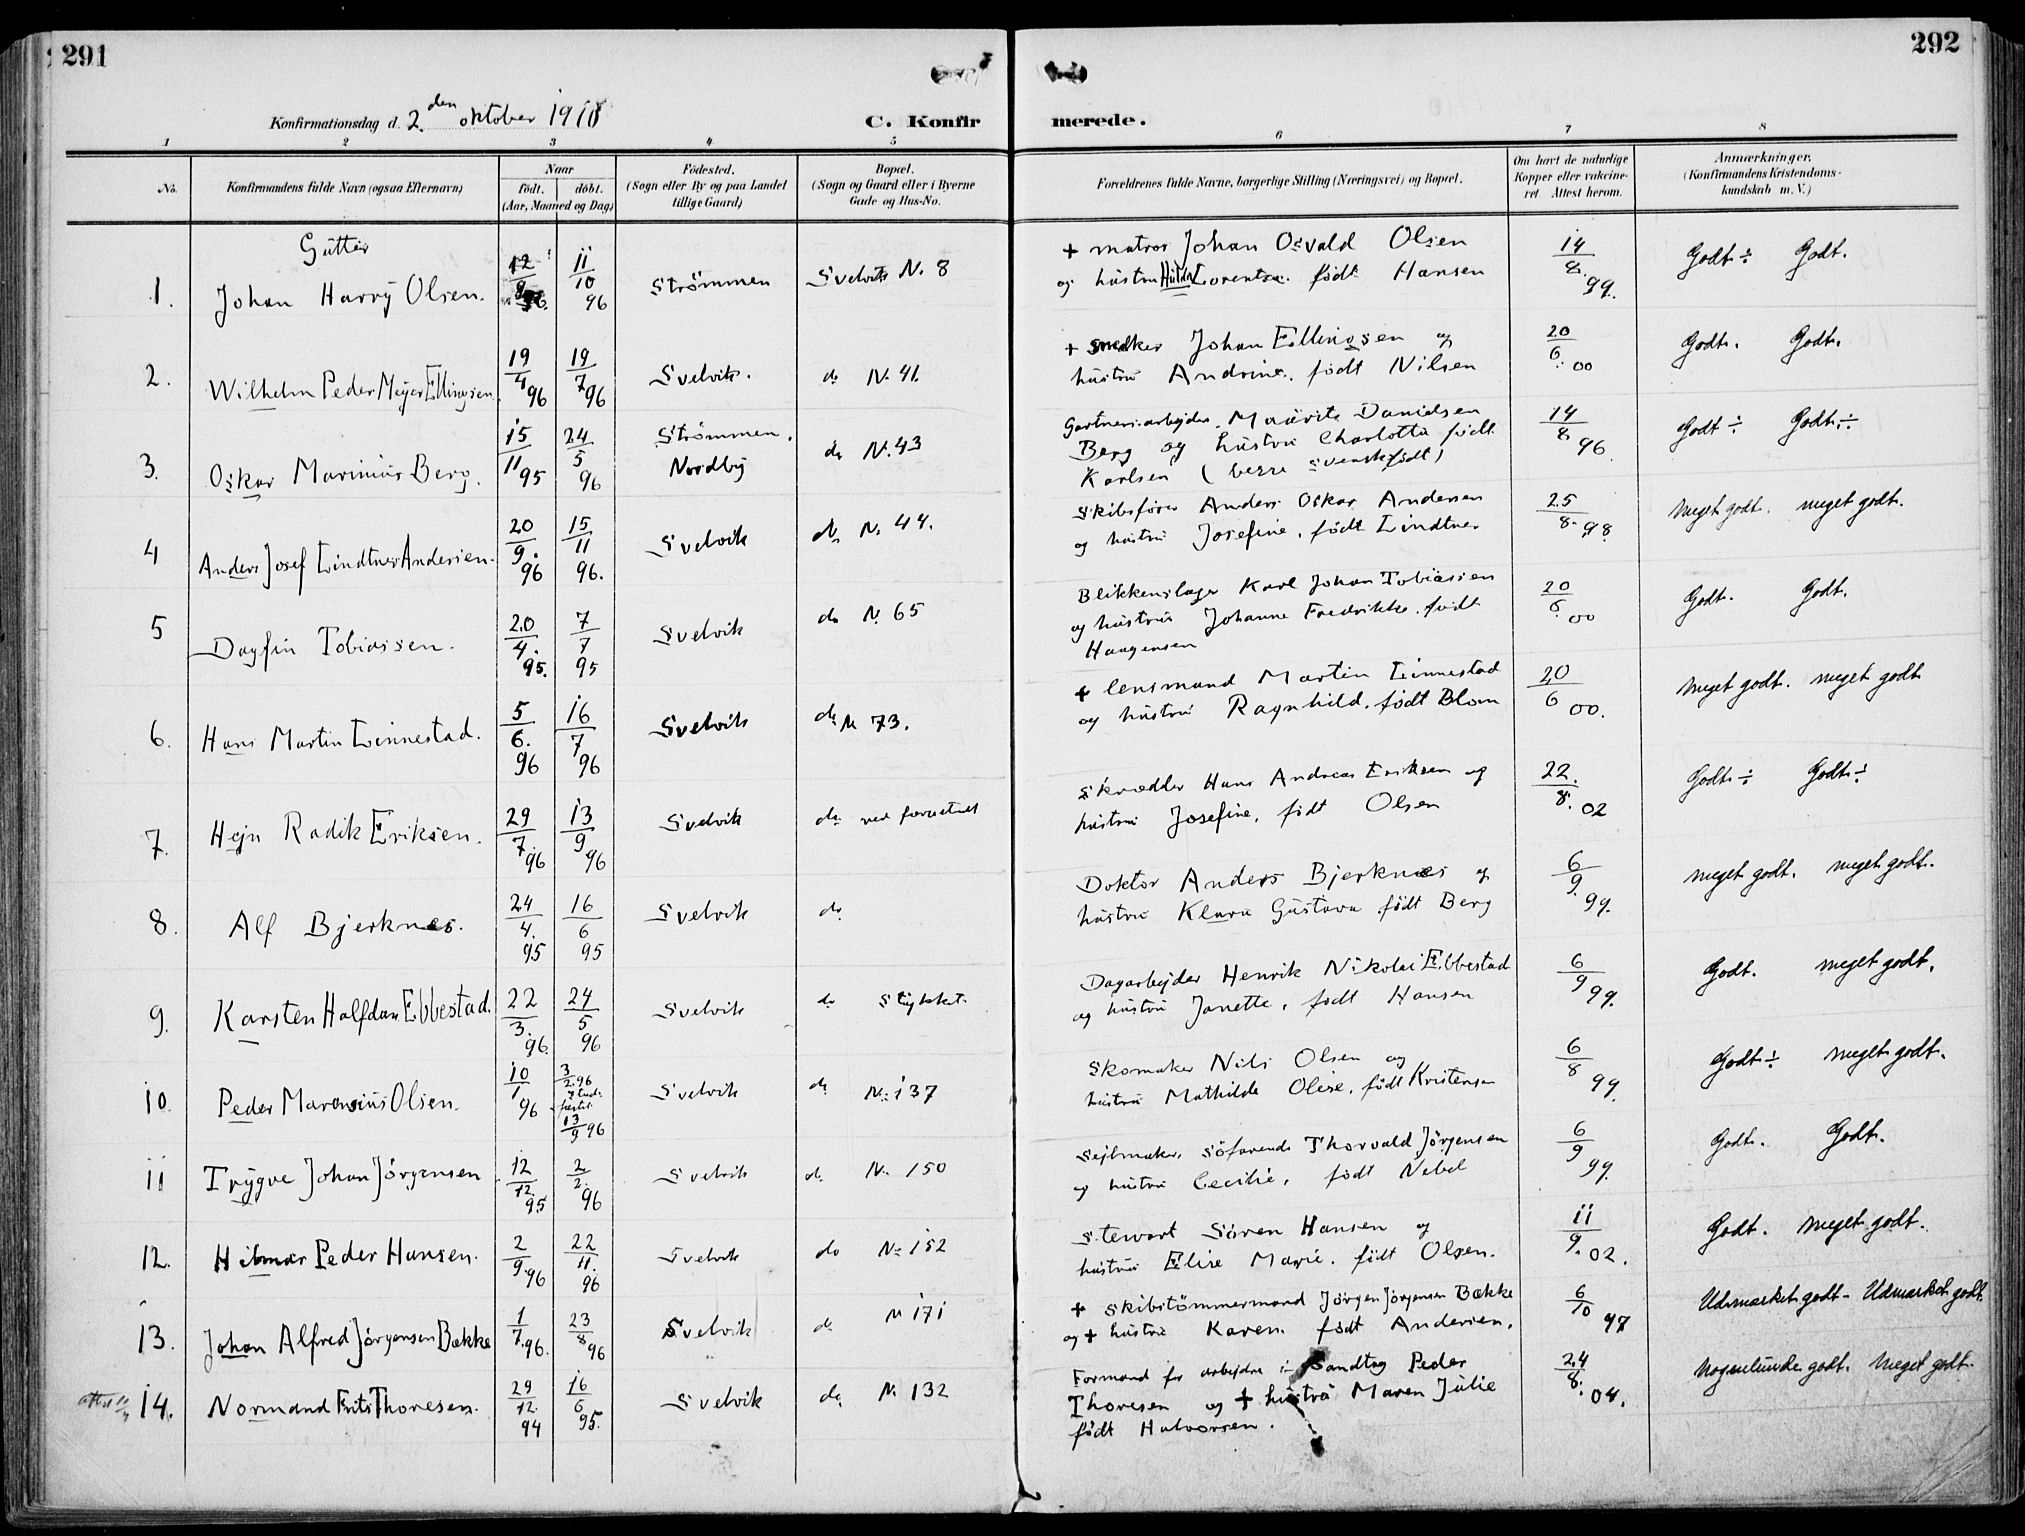 291
292
Konfirmationsdag d. 2. den oktober 1910
C. Konfir
merede.
1 2 3 4 5 6 7 8
No.
Konfirmandens fulde Navn (ogsaa Efternavn)
Naar
født. døbt.
(Aar, Maaned og Dag)
Fødested.
(Sogn eller By og paa Landet
tillige Gaard)
Bopæl.
(Sogn og Gaard eller i Byerne
Gade og Hus-No.
Forældrenes fulde Navne, borgerlige Stilling (Næringsvei) og Bopæl.
Om havt de naturlige
Kopper eller vakcine-
ret Attest herom.
Anmærkninger.
(Konfirmandens Kristendoms-
kundskab m. V.)
Gutter
1. Johan Harry Olsen. 12/8 96. 11/10 96 Strømmen Svelvik N. 8
+ matros Johan Osvald Olsen
og hustru Hulda Lorentse. født Hansen
14/8. 99. Godt ÷ Godt.
2. Wilhelm Peder Meyer Ellingsen 19/4 96 19/7 96 Svelvik. do N. 41.
+ snedker Johan Ellingsen og
hustru Andrine. født Nilsen
20/6. 00 Godt. Godt.
3. Oskar Marinius Berg. 15/11 95 24/5 96 Strømmen. Nordby do N. 43
Gartneriarbejder Mauritz Danielsen
Berg og hustru Charlotta født
Karlsen (begge svenskfødt)
14/8 96. Godt ÷ Godt. ÷
4 Anders Josef Lindtner Andersen. 20/9. 96 15/11 96. Svelvik do N. 44.
Skibsfører Anders Oskar Andersen
og hustru Josefine, født Lindtner
25/8. 98. Meget godt. meget godt.
5 Dagfin Tobiassen. 20/4. 95. 7/7 95 Svelvik do N. 65
Blikkenslager Karl Johan Tobiassen
og hustru Johanne Fredrikke. født
Haagensen
20/6 00 Godt. Godt.
6. Hans Martin Linnestad. 5/6. 96 16/7 96 Svelvik do N 73.
+ lensmand Martin Linnestad
og hustru Ragnhild. født Blom
20/6 00. Meget godt. meget godt
7. Hejn Radik Eriksen. 29/7. 96 13/9 96 Svelvik do
Skrædder Hans Andreas Eriksen og
hustru Josefine, født Olsen
22./8. 02 Godt ÷ Godt ÷
8. Alf Bjerknes. 24/4. 95 16/6 95 Svelvik do
Doktor Anders Bjerknes og
hustru Klara Gustava født Berg
6/9. 99. meget godt. meget godt.
9. Karsten Halfdan Ebbestad. 22/3. 96. 24/5 96 Svelvik do Stykket.
Dagarbejder Henrik Nikolai Ebbestad
og hustru Janette, født Hansen
6/9 99. Godt. meget godt.
10. Peder Marensius Olsen. 10/1 96 3/2. 96 13/9 96 Svelvik do N. 137
Skomaker Nils Olsen og
hustru Mathilde Olise, født Kristensen
6/8 99. Godt ÷ meget godt.
11 Trygve Johan Jørgensen 12/12. 95 2/2. 96 Svelvik do. N. 150
Sejlmaker, søfarende Thorvald Jørgensen
og hustru Cecilie, født Nebel
6/9 99. Godt. Godt.
12. Hilmar Peder Hansen. 2/9. 96 22/11. 96 Svelvik do N. 152
Stewart Søren Hansen og
hustru Elise Marie. født Olsen.
11/9. 02. Godt. Meget godt.
13. Johan Alfred Jørgensen Bække 1/7. 96. 23/8 96 Svelvik do N 171
+ Skibstømmermand Jørgen Jørgensen Bække
og + hustru Karen. født Andersen.
6/10 97 Udmærket godt - Udmærket godt.
14. Normand Frits Thoresen. 29/12. 94 16/6 95. Svelvik do N. 132
Formand for arbejdre i Sandtag Peder
Thoresen og + hustru Maren Julie
født Halvorsen.
24/8. 04. Nogenlunde godt. Meget godt.